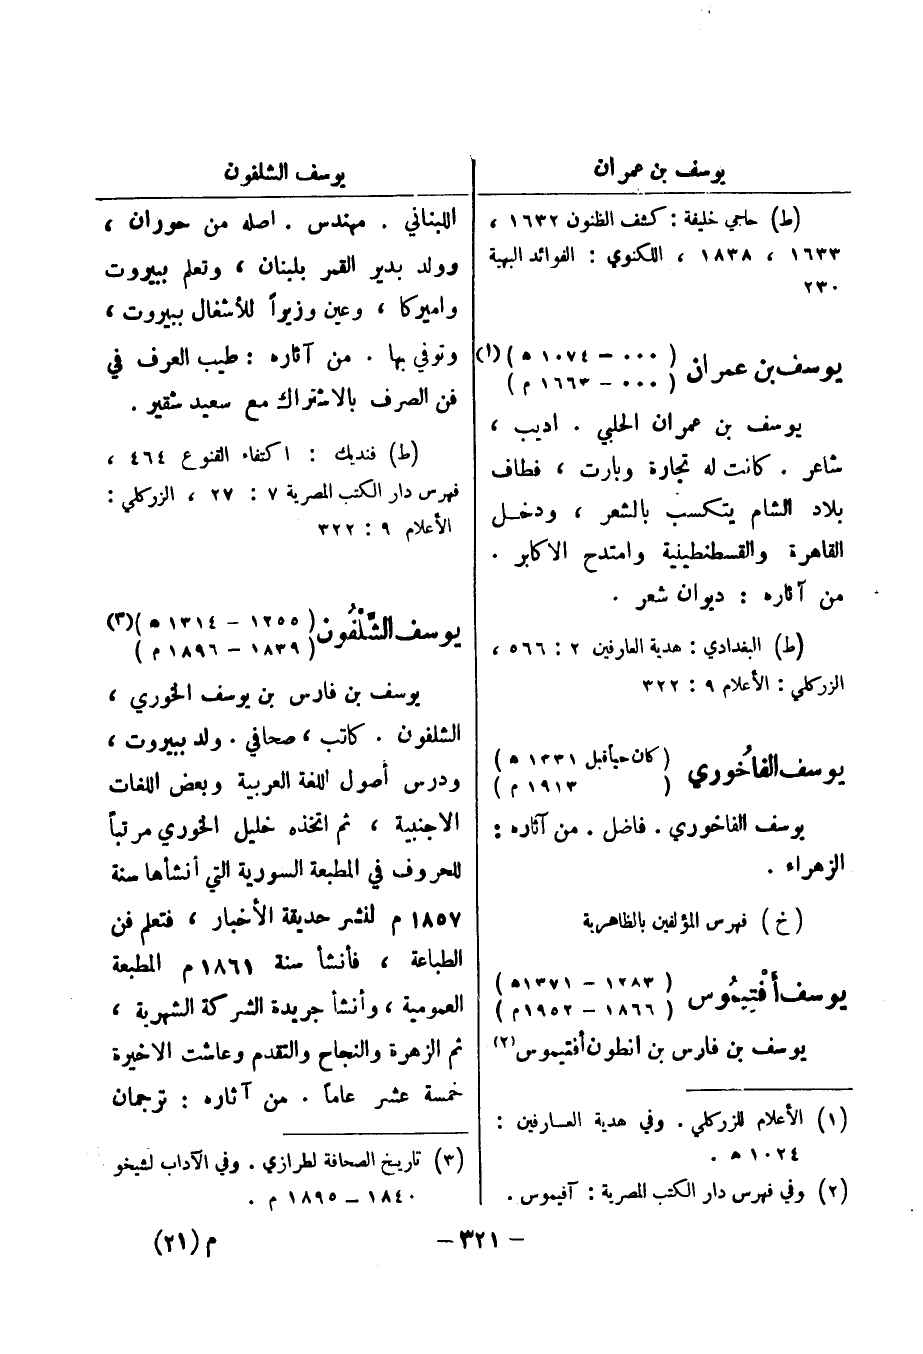 يوسف بن عمران
(ط) حاجي خليفة : كشف الظنون ١٦٣٢ ،
١٦٣٣ ، ١٨٣٨ ، اللكنوي : الفوائد البهية
٢٣٠
يوسف بن عمران (٠٠٠ – ١٠٧٤ ه)(١)
(٠٠٠ – ١٦٦٣ م)
يوسف بن عمران الحلبي . اديب ،
شاعر . كانت له تجارة وبارت ، فطاف
بلاد الشام يتكسب بالشعر ، ودخل
القاهرة والقسطنطينية وامتدح الاكابر .
من آثاره : ديوان شعر .
(ط) البغدادي : هدية العارفين ٢ : ٥٦٦ ،
الزركلي : الأعلام ٩ : ٣٢٢
يوسف الفاخُوري (كان حيا قبل ١٣٣١ ه)
(١٩١٣ م)
يوسف الفاخوري . فاضل . من آثاره :
الزهراء .
(خ) فهرس المؤلفين بالظاهرية
يوسف أفْتِيمُوس (١٢٨٣ – ١٣٧١ه)
(١٨٦٦ – ١٩٥٢م)
يوسف بن فارس بن انطون أفتيموس(٢)
(١) الأعلام للزركلي . وفي هدية العارفين :
١٠٢٤ ه .
(٢) وفي فهرس دار الكتب المصرية : آفيموس .
يوسف الشلفون
اللبناني . مهندس . اصله من حوران ،
وولد بدير القمر بلبنان ، وتعلم ببيروت
واميركا ، وعين وزيراً للأشغال ببيروت ،
وتوفي بها . من آثاره : طيب العرف في
فن الصرف بالاشتراك مع سعيد شقير .
(ط) فنديك : اكتفاء القنوع ٤٦٤ ،
فهرس دار الكتب المصرية ٧ : ٢٧ ، الزركلي :
الأعلام ٩ : ٣٢٢
يوسف الشَّلْفُون (١٢٥٥ – ١٣١٤ ه)(٣)
(١٨٣٩ – ١٨٩٦ م)
يوسف بن فارس بن يوسف الخوري ،
الشلفون . كاتب ، صحافي . ولد ببيروت ،
ودرس أصول اللغة العربية وبعض اللغات
الاجنبية ، ثم اتخذه خليل الخوري مرتباً
للحروف في المطبعة السورية التي أنشأها سنة
١٨٥٧ م لنشر حديقة الأخبار ، فتعلم فن
الطباعة ، فأنشأ سنة ١٨٦١ م المطبعة
العمومية ، وأنشأ جريدة الشركة الشهرية ،
ثم الزهرة والنجاح والتقدم وعاشت الاخيرة
خمسة عشر عاماً . من آثاره : ترجمان
(٣) تاريخ الصحافة لطرازي . وفي الآداب لشيخو
١٨٤٠ – ١٨٩٥ م .
– ٣٢١ –
م (٢١)